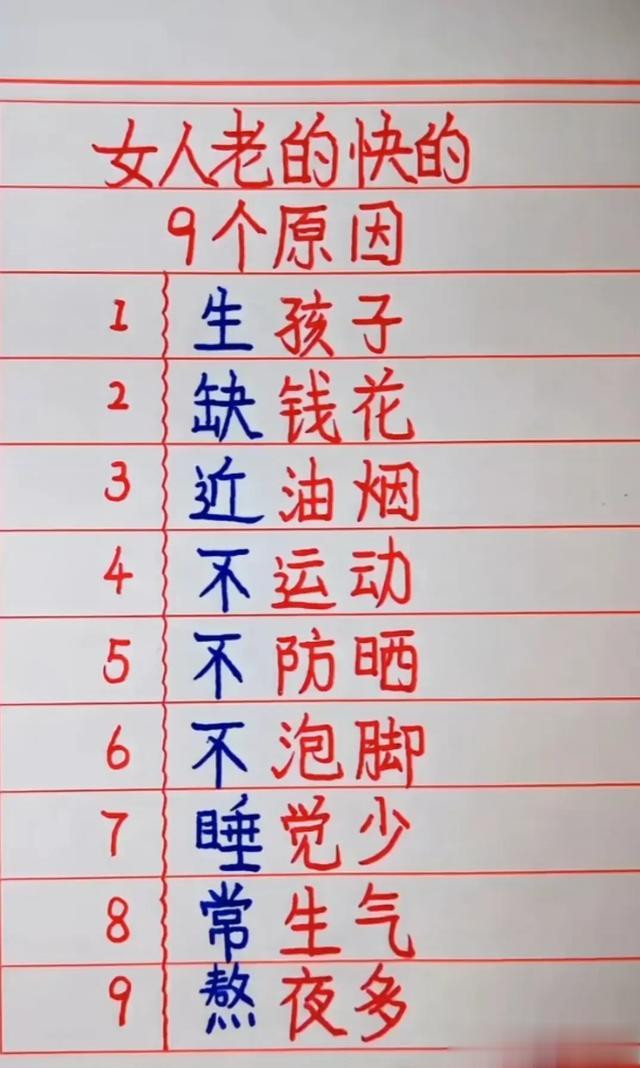 女人老的快的
9个原因
1 生孩子
2 缺钱花
3 近油烟
4 不运动
5 不防晒
6 不泡脚
7 睡觉少
8 常生气
9 熬夜多